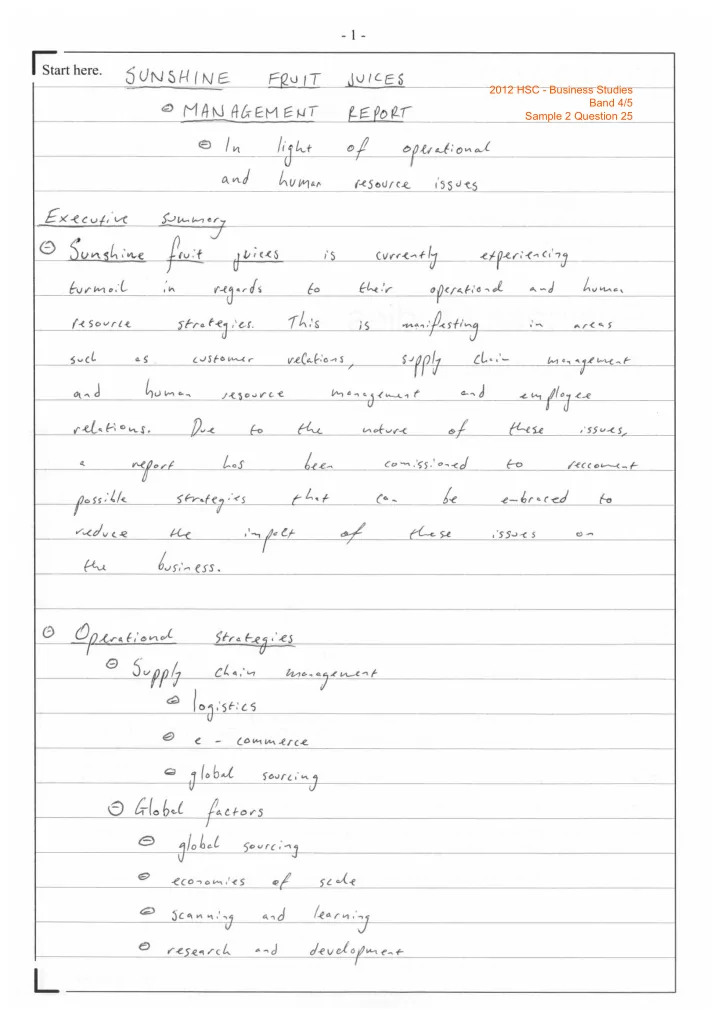 - 1 -
Start here.
SUNSHINE FRUIT JUICES
2012 HSC - Business Studies
Band 4/5
Sample 2 Question 25
MANAGEMENT REPORT
In light of operational
and human resource issues
Executive Summary
Sunshine fruit juices is currently experiencing
turmoil in regards to their operational and human
resource strategies. This is manifesting in areas
such as customer relations, supply chain management
and human resource management and employee
relations. Due to the nature of these issues,
a report has been comissioned to reccoment
possible strategies that can be embraced to
reduce the impact of these issues on
the business.
Operational Strategies
Supply chain management
logistics
e - commerce
global sourcing
Global factors
global sourcing
economies of scale
scanning and learning
research and development